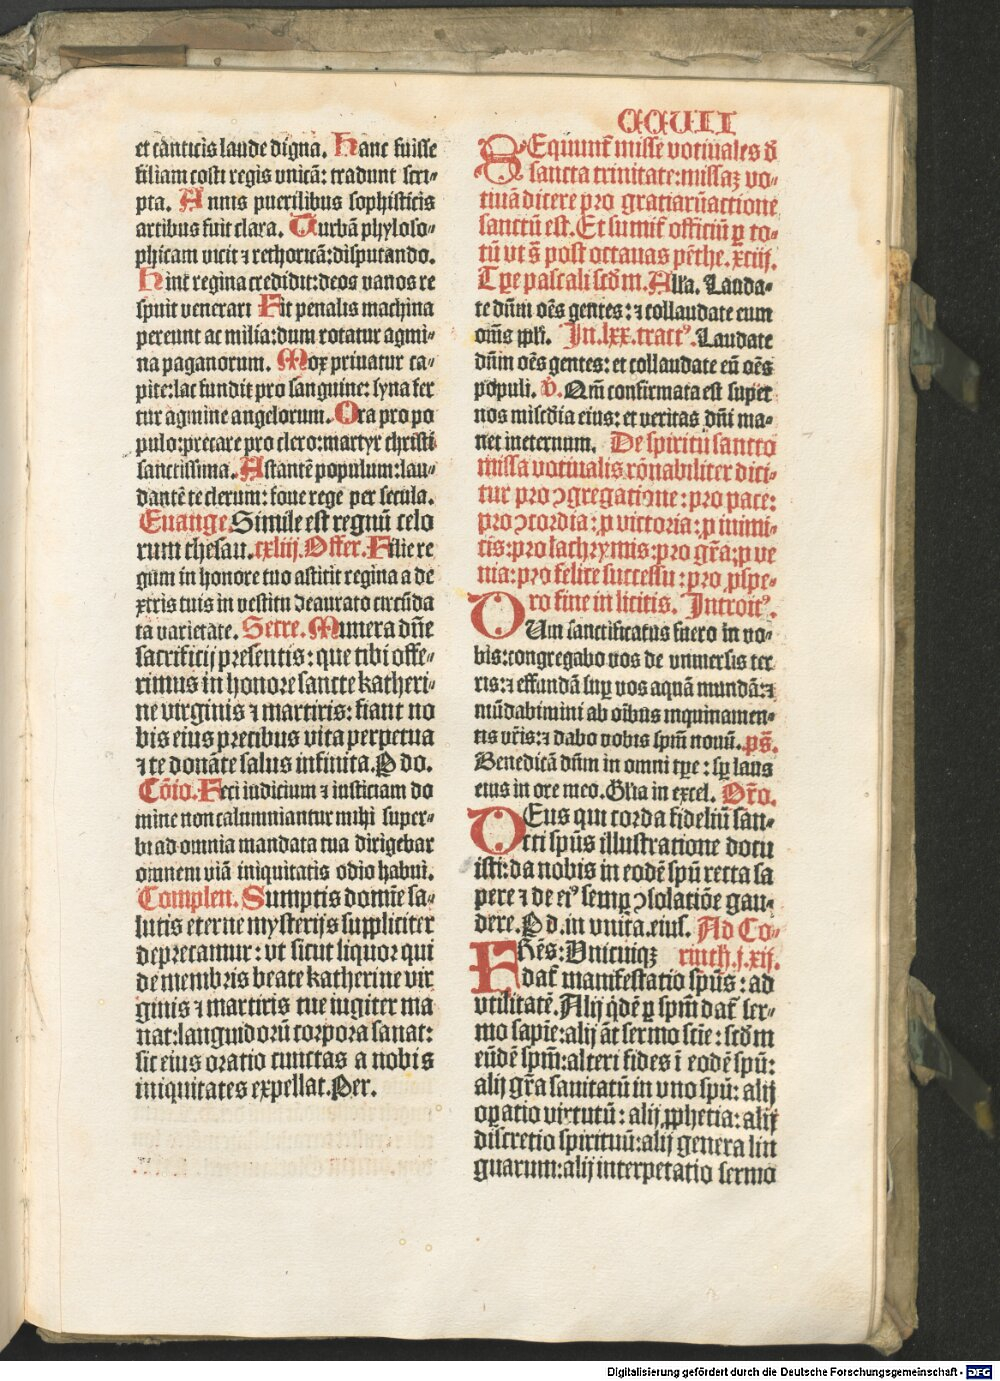 CCVII
et canticis laude digna. Hanc fuisse
filiam costi regis vnicā: tradunt scri-
pta. Annis puerilibus sophisticis
artibus fuit clara. Turbā phyloso-
phicam vicit ⁊ rethoricā: disputando.
Hinc regina credidit: deos vanos re
spuit venerari Fit penalis machina
pereunt ac milia: dum rotatur agmi-
na paganorum. Mox priuatur ca-
pite: lac fundit pro sanguine: syna fer
tur agmine angelorum. Ora pro po
pulo: precare pro clero: martyr christi
sanctissima. Astantē populum: lau-
dantē te clerum: foue regē per secula.
Euange. Simile est regnū celo
rum thesau. cxliij. Offer. Filie re
gum in honore tuo astitit regina a de
xtris tuis in vestitu deaurato circūda
ta varietate. Secre. Munera dn̄e
sacrificij presentis: que tibi offe-
rimus in honore sancte katheri-
ne virginis ⁊ martiris: fiant no
bis eius precibus vita perpetua
⁊ te donāte salus infinita. P do.
Cōio. Feci iudicium ⁊ iusticiam do
mine non calumniantur mihi super-
bi ad omnia mandata tua dirigebar
omnem viā iniquitatis odio habui.
Complen. Sumptis domīe sa-
lutis eterne mysterijs suppliciter
deprecamur: vt sicut liquor qui
de membris beate katherine vir
ginis ⁊ martiris tue iugiter ma
nat: languidorū corpora sanat:
sic eius oratio cunctas a nobis
iniquitates expellat. Per.
SEquunt̄ misse votiuales d̄
sancta trinitate: missaꝫ vo-
tiuā dicere pro gratiarūactione
sanctū est. Et sumit̄ officiū ꝑ to-
tū vt s̄ post octauas pēthe. xciij.
Tꝑe pascali scd̄m. Alla. Lauda-
te dn̄m oēs gentes: ⁊ collaudate eum
om̄s ppl̄i. In. lxx. tractꝰ. Laudate
dn̄m oēs gentes: et collaudate eū oēs
pōpuli. v̄. Qm̄ confirmata est super
nos misc̄dia eius: et veritas dn̄i ma-
net ineternum. De spiritu sancto
missa votiualis rōnabiliter dici-
tur pro ꝯgregatiōne: pro pace:
pro ꝯcordia: ꝓ victoria: ꝓ inimi-
cis: pro lachrymis: pro gr̄a: ꝓ ve
nia: pro felice successu: pro ꝓspe-
ro fine in licitis. Introitꝰ.
CUm sanctificatus fuero in vo-
bis: congregabo vos de vniuersis ter
ris: ⁊ effundā suꝑ vos aquā mundā: ⁊
mūdabimini ab oībus inquinamen-
tis vr̄is: ⁊ dabo vobis spm̄ nouū. ps̄.
Benedicā dn̄m in omni tꝑe: sꝑ laus
eius in ore meo. Gl̄ia in excel. Or̄o.
DEus qui corda fideliū san-
cti spūs illustratione docu
isti: da nobis in eodē spū recta sa
pere ⁊ de eiꝰ semꝑ ꝯsolatiōe gau-
dere. P d. in vnita. eius. Ad Co-
FRēs: Vnicuiqꝫ rinth. j. xij.
dat̄ manifestatio spūs: ad
vtilitatē. Alij qd̄ē ꝑ spm̄ dat̄ ser-
mo sapie: alij āt sermo scīe: scd̄m
eūdē spm̄: alteri fides ī eodē spū:
alij gr̄a sanitatū in vno spū: alij
oꝑatio virtutū: alij ꝓphetia: alij
discretio spirituū: alij genera lin
guarum: alij interpetatio sermo
Digitalisierung gefördert durch die Deutsche Forschungsgemeinschaft - DFG